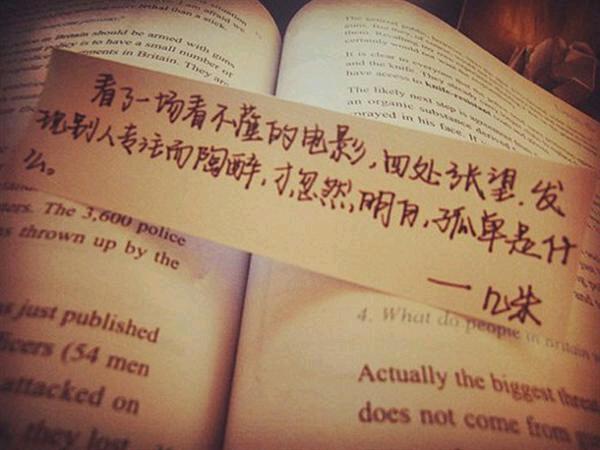 lethal than a stick.
situation
afraid we
Britain should be armed with guns
policy is to have a small number of
ments in Britain. They are
It is clear to everyone that
and the knife. They already
have access to knife-resistant
The likely next step is agreement
an organic substance derived
sprayed in his face. It
看了一场看不懂的电影，四处张望，发
现别人专注而陶醉，才忽然，明白，孤单是什
么。
—几米
ters. The 3,600 police
s thrown up by the
s just published
ficers (54 men
attacked on
they lost
4. What do people in Britain
Actually the biggest threat
does not come from